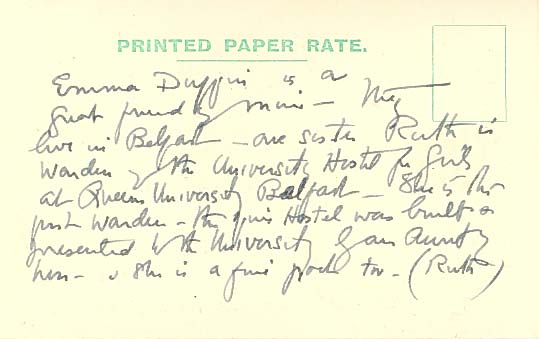 PRINTED PAPER RATE.
Emma Duffin is a
great friend of mine - They
live in Belfast - one sister Ruth is
Warden of the University Hostel for Girls
at Queens University Belfast - She is the
first Warden - the girls Hostel was built &
presented to the University by an aunt of
hers - & she is a fine poet too - (Ruth)